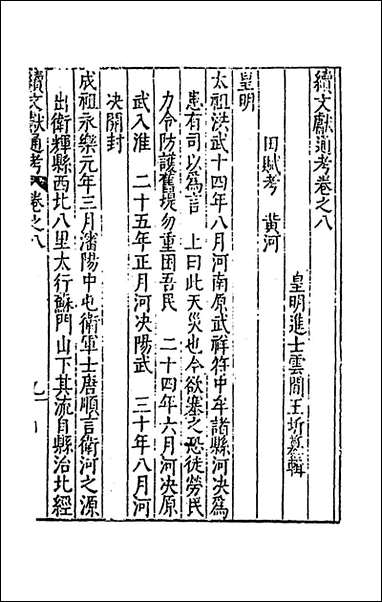 續文獻通考卷之八
皇明進士雲間王圻纂輯
田賦考　黃河
皇明
太祖洪武十四年八月河南原武祥符中牟諸縣河決爲
患有司以爲言　上曰此天災也今欲塞之恐徒勞民
力令防護舊堤勿重困吾民　二十四年六月河決原
武入淮　二十五年正月河决陽武　三十年八月河
决開封
成祖永樂元年三月瀋陽中屯衛軍士唐順言衛河之源
出衛輝縣西北八里太行蘇門山下其流自縣治北經
續文獻通考　卷之八